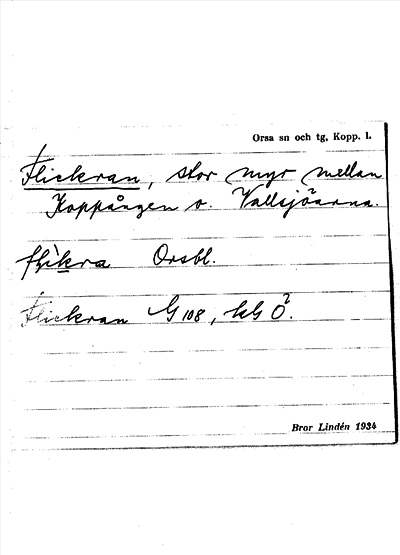 Orsa sn och tg, Kopp. l.
Flickran, stor myr mellan
Koppången o. Vallsjöarna.
Orsbl.
Flickran G 108,
Bror Lindén 1934